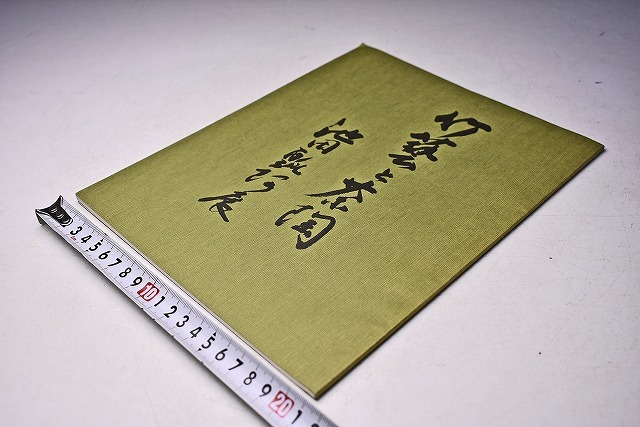 竹藝と茶陶
池田瓢阿展
3 4 5 6 7 8 9 10 1 2 3 4 5 6 7 8 9 20 1